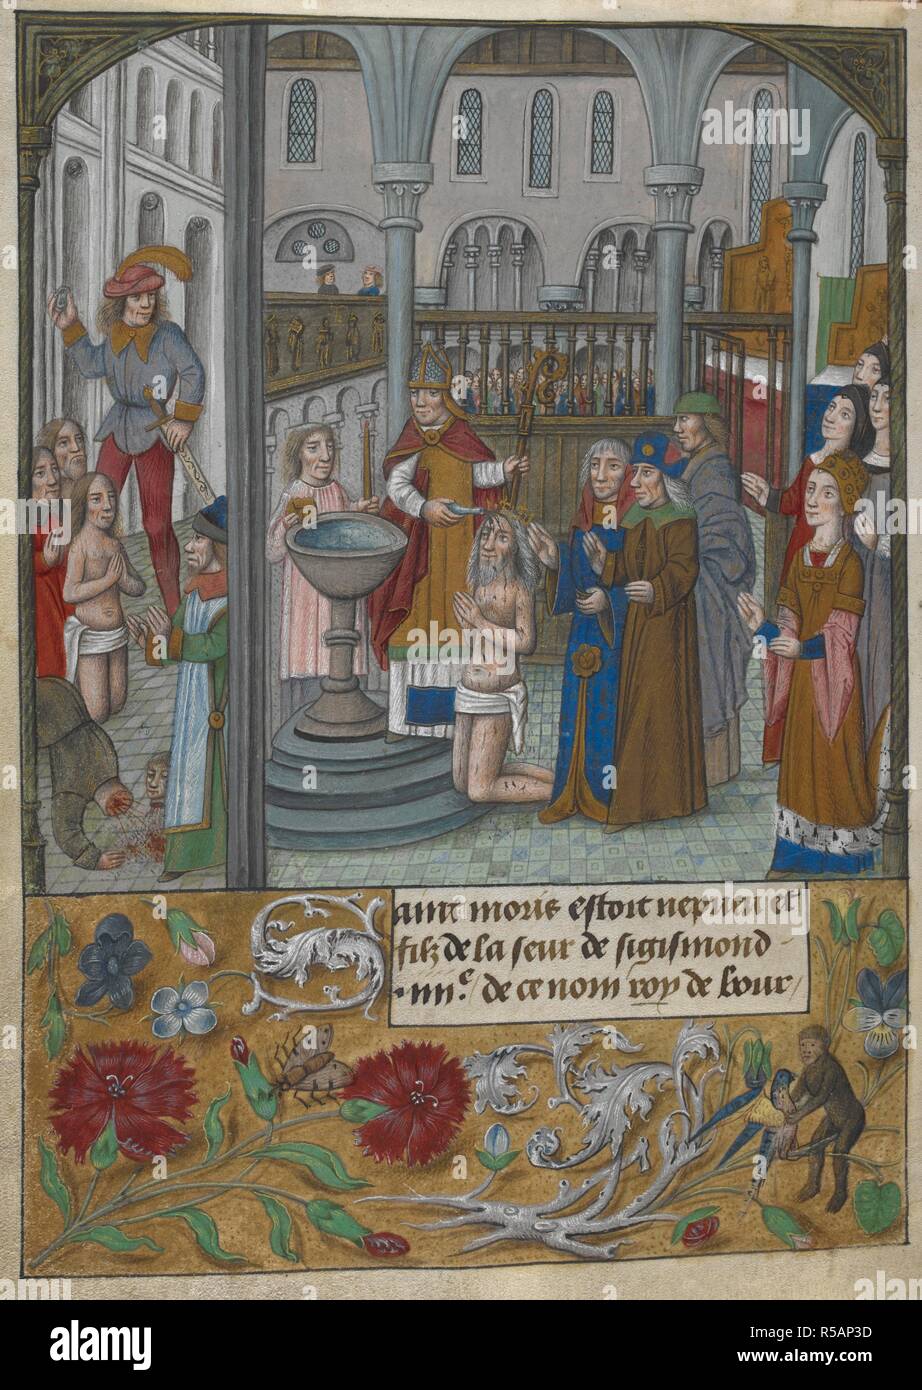 aint moris estoit nepueu et
filz de la seur de sigismond
.iiii.e/ de ce nom roy de bour/
alamy
alamy
Image ID: R5AP3D
www.alamy.com